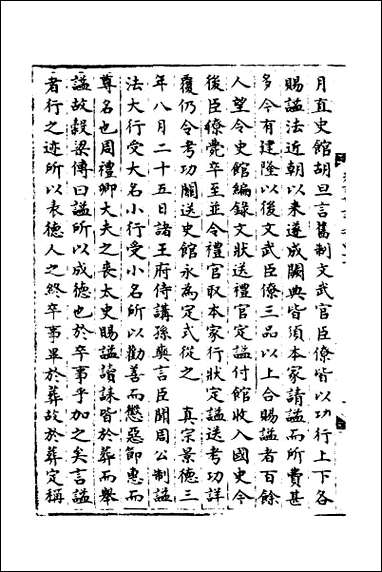 月直史館胡旦言舊制文武官臣僚皆以功行上下各
賜謚法近朝以来遂成闕典皆須本家請謚而所費甚
多今有建隆以後文武臣僚三品以上合賜謚者百餘
人望令史館編錄文狀送禮官定謚付館收入國史今
後臣僚薨卒至並令禮官取本家行狀定謚送考功詳
覆仍令考功關送史館永為定式從之　真宗景德三
年八月二十五日諸王府侍講孫奭言臣聞周公制謚
法大行受大名小行受小名所以勸善而懲惡節惠而
尊名也周禮卿大夫之喪太史賜謚讀誄皆於葬而舉
謚故穀梁傳曰謚所以成德也於卒事乎加之矣言謚
者行之迹所以表德人之終卒事畢於葬故於葬定稱